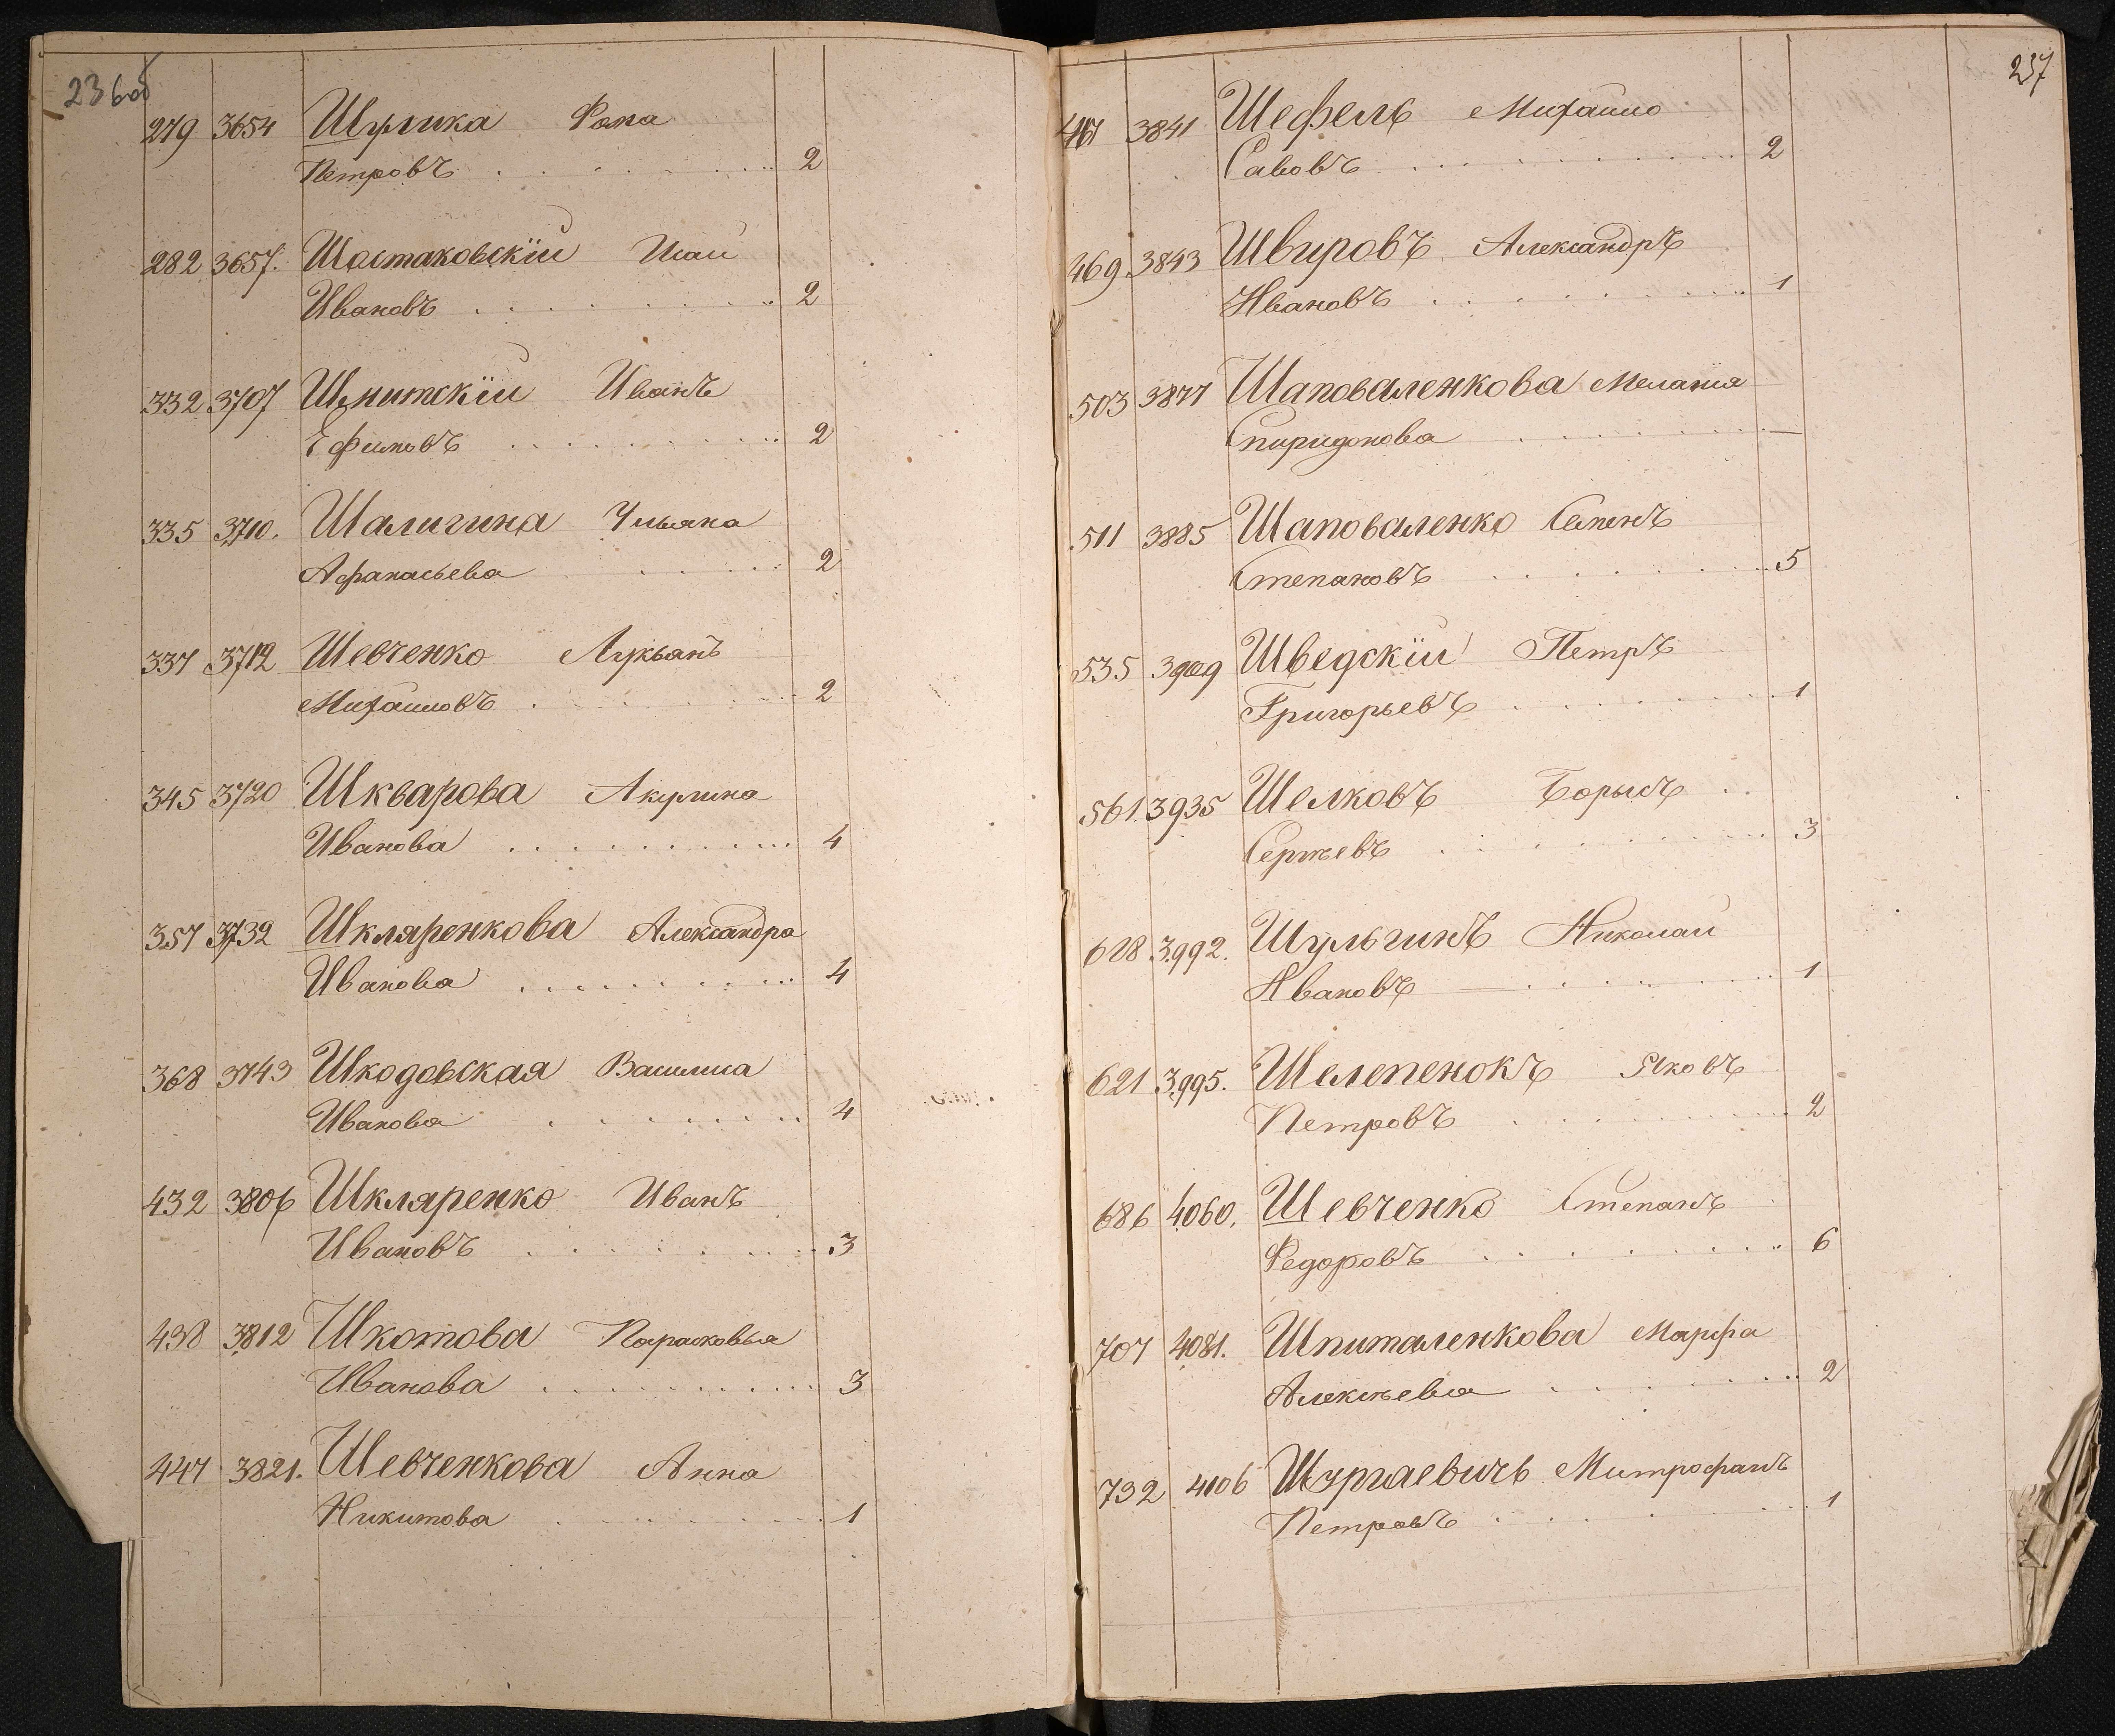 236об
279 3654 Шулика Фока
Петровъ 2
282 3657. Шостаковскій Исай
Ивановъ 2
332 3707 Шмитскій Иванъ
Ефимовъ 2
335 3710. Шалигина Ульяна
Афанасьева 2
337 3712 Шевченко Лукьянъ
Михайловъ 2
345 3720 Шкварова Акулина
Иванова 4
357 3732 Шкляренкова Александра
Иванова 4
368 3743 Шкодовская Василиса
Иванова 4
432 3806 Шкляренко Иванъ
Ивановъ 3
438 3812 Шкотова Парасковья
Иванова 3
447 3821. Шевченкова Анна
Никитова 1
237
467 3841 Шефель Михайло
Савовъ 2
469 3843 Швыровъ Александръ
Ивановъ 1
503 3877 Шаповаленкова Меланія
Спиридонова —
511 3885 Шаповаленко Семенъ
Степановъ 5
535 3909 Шведскій Петръ
Григорьевъ 1
561 3935 Шелковъ Борысъ
Сергѣевъ 3
618 3992. Шульгинъ Николай
Ивановъ 1
621 3995. Шелепенокъ Яковъ
Петровъ 2
686 4060. Шевченко Степанъ
Федоровъ 6
707 4081. Шпиталенкова Марфа
Алексѣева 2
732 4106 Шургаевичь Митрофанъ
Петровъ 1